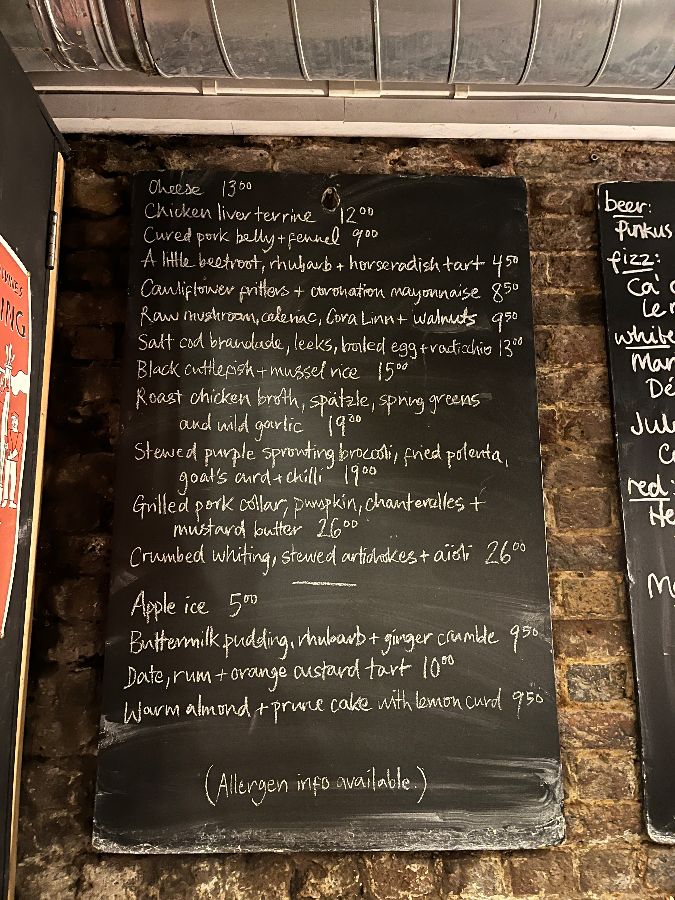 Cheese 13.00
Chicken liver terrine 12.00
Cured pork belly + fennel 9.00
A little beetroot, rhubarb + horseradish tart 4.50
Cauliflower fritters + coronation mayonnaise 8.50
Raw mushroom, celeriac, Cora Linn + walnuts 9.50
Salt cod brandade, leeks, boiled egg + radicchio 13.00
Black cuttlefish + mussel rice 15.00
Roast chicken broth, spätzle, spring greens
and wild garlic 19.00
Stewed purple sprouting broccoli, fried polenta,
goat's curd + chilli 19.00
Grilled pork collar, pumpkin, chanterelles +
mustard butter 26.00
Crumbed whiting, stewed artichokes + aïoli 26.00
Apple ice 5.00
Buttermilk pudding, rhubarb + ginger crumble 9.50
Date, rum + orange custard tart 10.00
Warm almond + prune cake with lemon curd 9.50
(Allergen info available.)
beer:
Pinkus
fizz:
Ca'
white
Mar
Dé
red:
He
ING